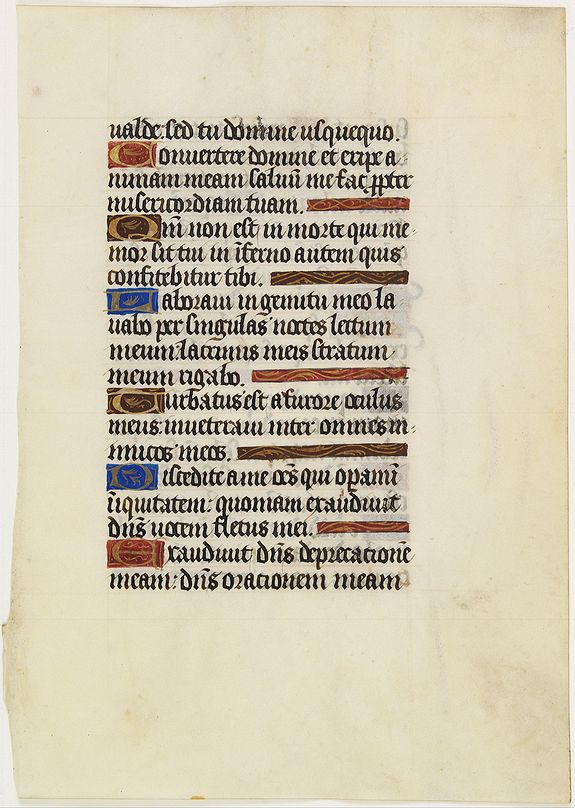 ualde: sed tu domine usquequo.
Conuertere domine et eripe a
nimam meam saluū me fac ꝓpter
misericordiam tuam.
Qm̄ non est in morte qui me-
mor sit tui in īferno autem quis
confitebitur tibi.
Laboraui in gemitu meo la
uabo per singulas noctes lectum
meum: lacrimis meis stratum
meum rigabo.
Turbatus est a furore oculus
meus: inueteraui inter omnes in-
imicos meos.
Discedite a me oēs qui opamī
iniquitatem: quoniam exaudiuit
dn̄s uocem fletus mei.
Exaudiuit dn̄s deprecationē
meam: dn̄s oracionem meam